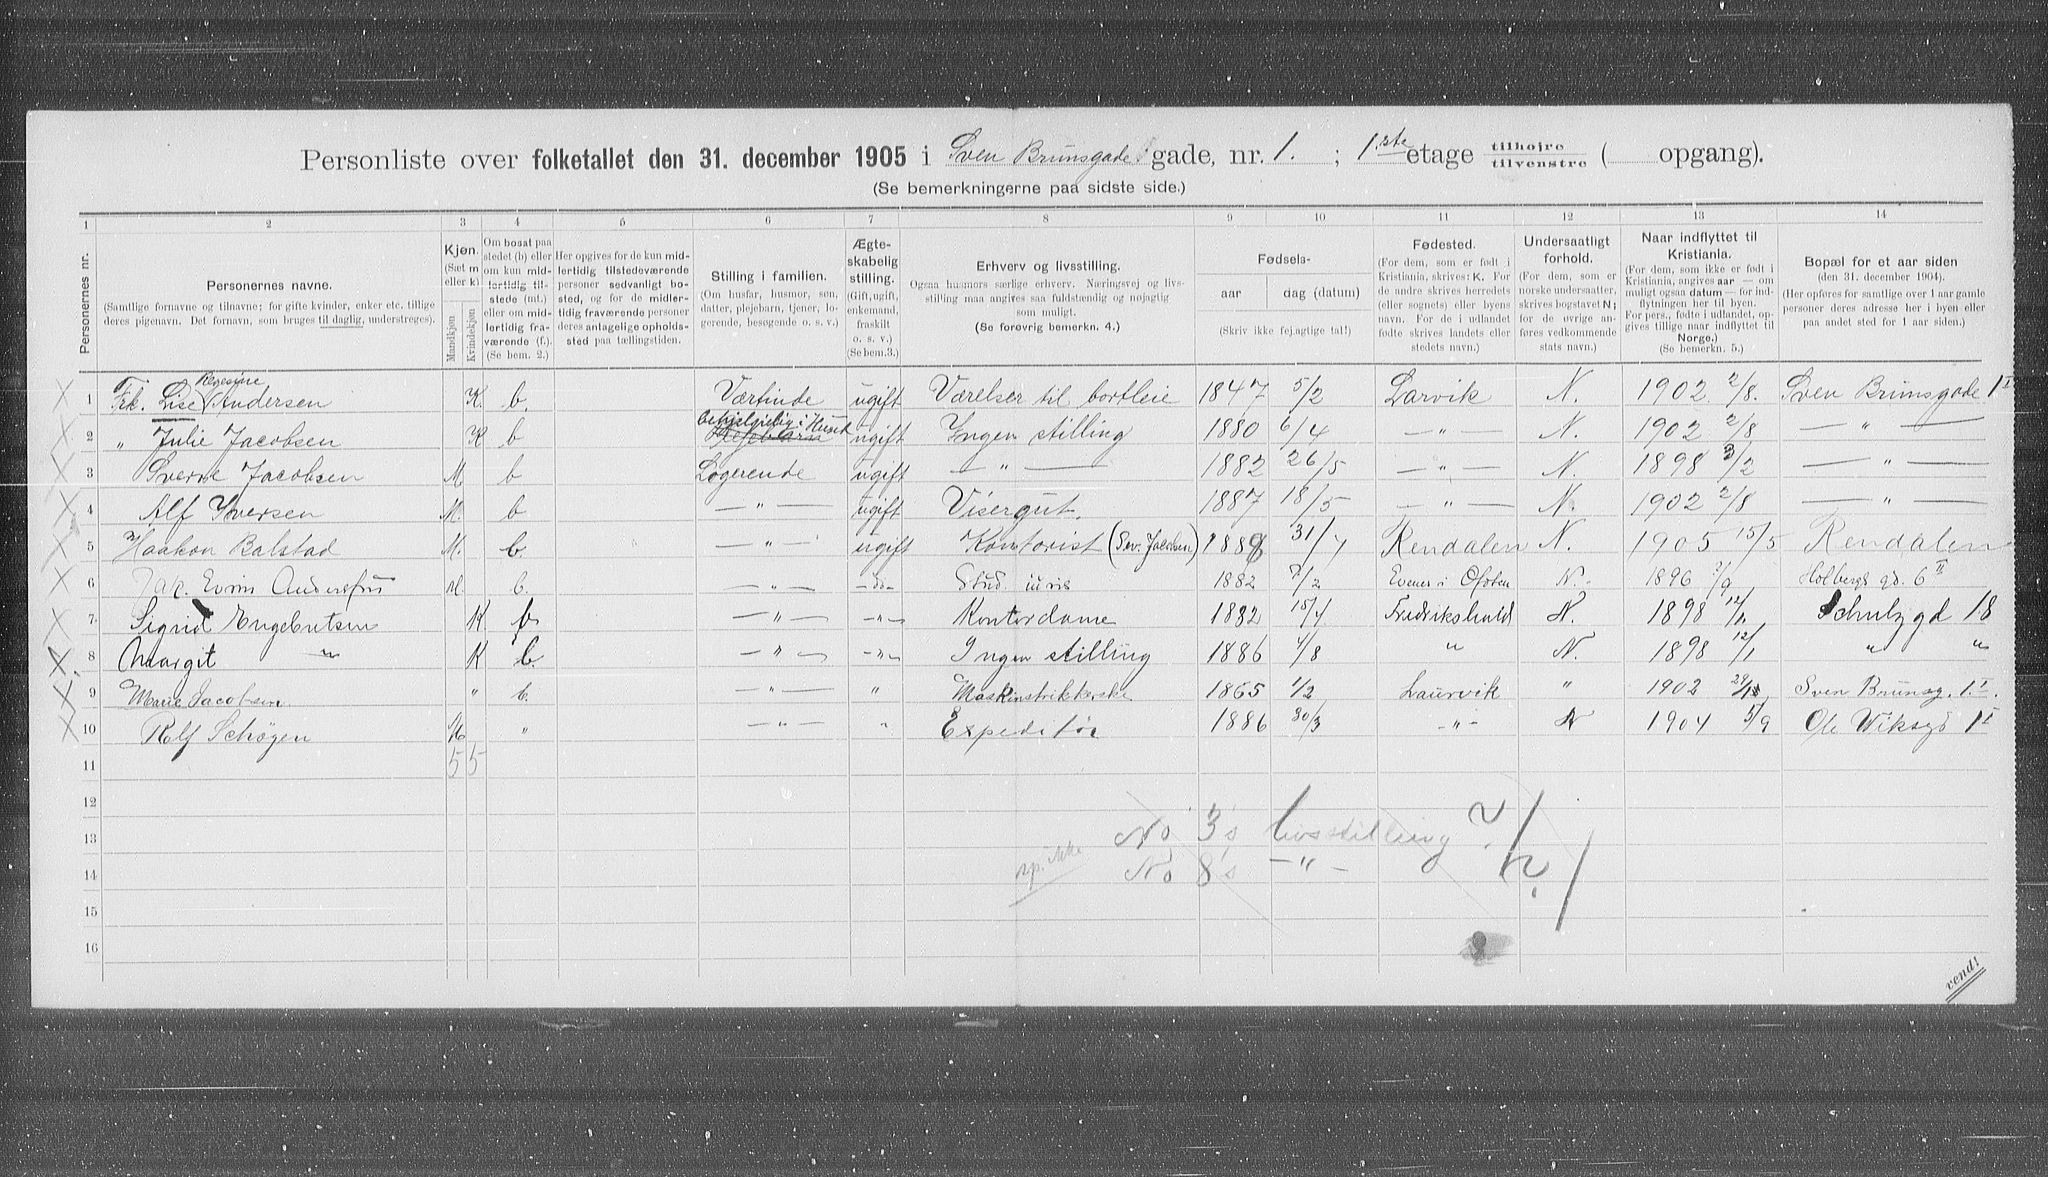 Personliste over folketallet den 31. december 1905 i Sven Brunsgade gade, nr. 1. ; 1ste etage tilhøjre tilvenstre ( opgang).
(Se bemerkningerne paa sidste side.)
1 2 3 4 5 6 7 8 9 10 11 12 13 14
Personernes nr.
Personernes navne.
(Samtlige fornavne og tilnavne; for gifte kvinder, enker etc. tillige deres pigenavn. Det fornavn, som bruges til daglig, understreges).
Kjøn. (Sæt m eller k) Mandkjøn Kvindekjøn
Om bosat paa stedet (b) eller om kun midlertidig tilstede (mt.) eller om midlertidig fraværende (f.). (Se bem. 2.)
Her opgives for de kun midlertidig tilstedeværende personer sedvanligt bosted, og for de midlertidig fraværende personer deres antagelige opholdssted paa tællingstiden.
Stilling i familien.
(Om husfar, husmor, søn, datter, plejebarn, tjener, logerende, besøgende o. s. v.)
Ægteskabelig stilling. (Gift, ugift, enkemand, fraskilt o. s. v.) (Se bem. 3.)
Erhverv og livsstilling.
Ogsaa husmors særlige erhverv. Næringsvej og livsstilling maa angives saa fuldstændig og nøjagtig som muligt.
(Se forøvrig bemerkn. 4.)
Fødsels-
aar dag (datum)
(Skriv ikke fejlagtige tal!)
Fødested.
(For dem, som er født i Kristiania, skrives: K. For de andre skrives herredets (eller sognets) eller byens navn. For de i udlandet fødte skrives landets eller stedets navn.)
Undersaatligt forhold.
(For dem, som er norske undersaatter, skrives bogstavet N; for de øvrige anføres vedkommende stats navn.)
Naar indflyttet til Kristiania.
(For dem, som ikke er født i Kristiania, angives aar — om muligt ogsaa datum — for indflytningen her til byen. For pers., fødte i udlandet, opgives tillige naar indflyttet til Norge.) (Se bemerkn. 5.)
Bopæl for et aar siden
(den 31. december 1904).
(Her opføres for samtlige over 1 aar gamle personer deres adresse her i byen eller paa andet sted for 1 aar siden.)
1 Frk. Lise Regesine Andersen K. b. Værtinde ugift Værelser til bortleie 1847 5/2 Larvik N. 1902 2/8. Sven Brunsgade 1 I
2 „ Julie Jacobsen K b behjelpelig i Huset ugift Ingen stilling 1880 6/4 — „ — N. 1902 2/8 — „ —
3 Sverre Jacobsen M b Logerende ugift — „ — 1882 26/5 — „ — N. 1898 3/2 — „ —
4 Alf Iversen M. b — „ — ugift Visergut. 1887 18/5 — „ — N. 1902 2/8 — „ —
5 Haakon Balstad M. b. — „ — ugift Kontorist (Sev. Jacobsen) 1888 31/7 Rendalen N. 1905 15/5 Rendalen
6 Evin M. b. — „ — -do- Stud. iuris 1882 7/2 Evenes i Ofoten N. 1896 /9 Holbergs gd. 6 II
7 Sigrid Engebretsen K b — „ — — „ — Kontordame 1882 15/4 Fredrikshald N. 1898 12/1 Schultzgd 18
8 Margit „ K b. — „ — — „ — Ingen stilling 1886 4/8 „ N. 1898 12/1 „ „
9 Marie Jacobsen „ b. — „ — „ Maskinstrikkerske 1865 1/2 Laurvik „ 1902 Sven Brunsg. 1. I.
10 Rolf Schøgen M „ — „ — „ Expeditør 1886 30/3 — „ — N 1904 5/9 Ole Wiksgd 1 I
11 5 5
12
13 No 3's livsstilling ?
14 sp. ikke No 8's — „ — ?
15
16
vend!